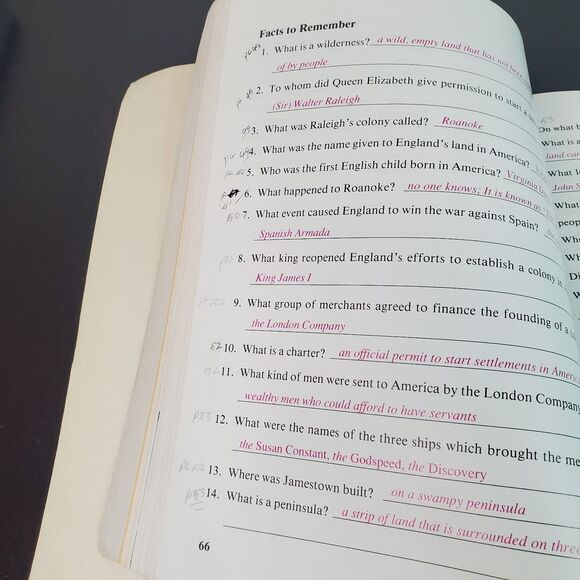 Facts to Remember
1. What is a wilderness? a wild, empty land that has not been
of by people
2. To whom did Queen Elizabeth give permission to start a
(Sir) Walter Raleigh
3. What was Raleigh's colony called? Roanoke
4. What was the name given to England's land in America?
5. Who was the first English child born in America? Virginia
6. What happened to Roanoke? no one knows; It is known as
7. What event caused England to win the war against Spain?
Spanish Armada
8. What king reopened England's efforts to establish a colony in
King James I
9. What group of merchants agreed to finance the founding of a
the London Company
p52 10. What is a charter? an official permit to start settlements in America
11. What kind of men were sent to America by the London Company
wealthy men who could afford to have servants
p53 12. What were the names of the three ships which brought the me
the Susan Constant, the Godspeed, the Discovery
13. Where was Jamestown built? on a swampy peninsula
p53 14. What is a peninsula? a strip of land that is surrounded on three
66
53
On what
What is a
land
What
John S
What
peop
Who
Wh
Di
W